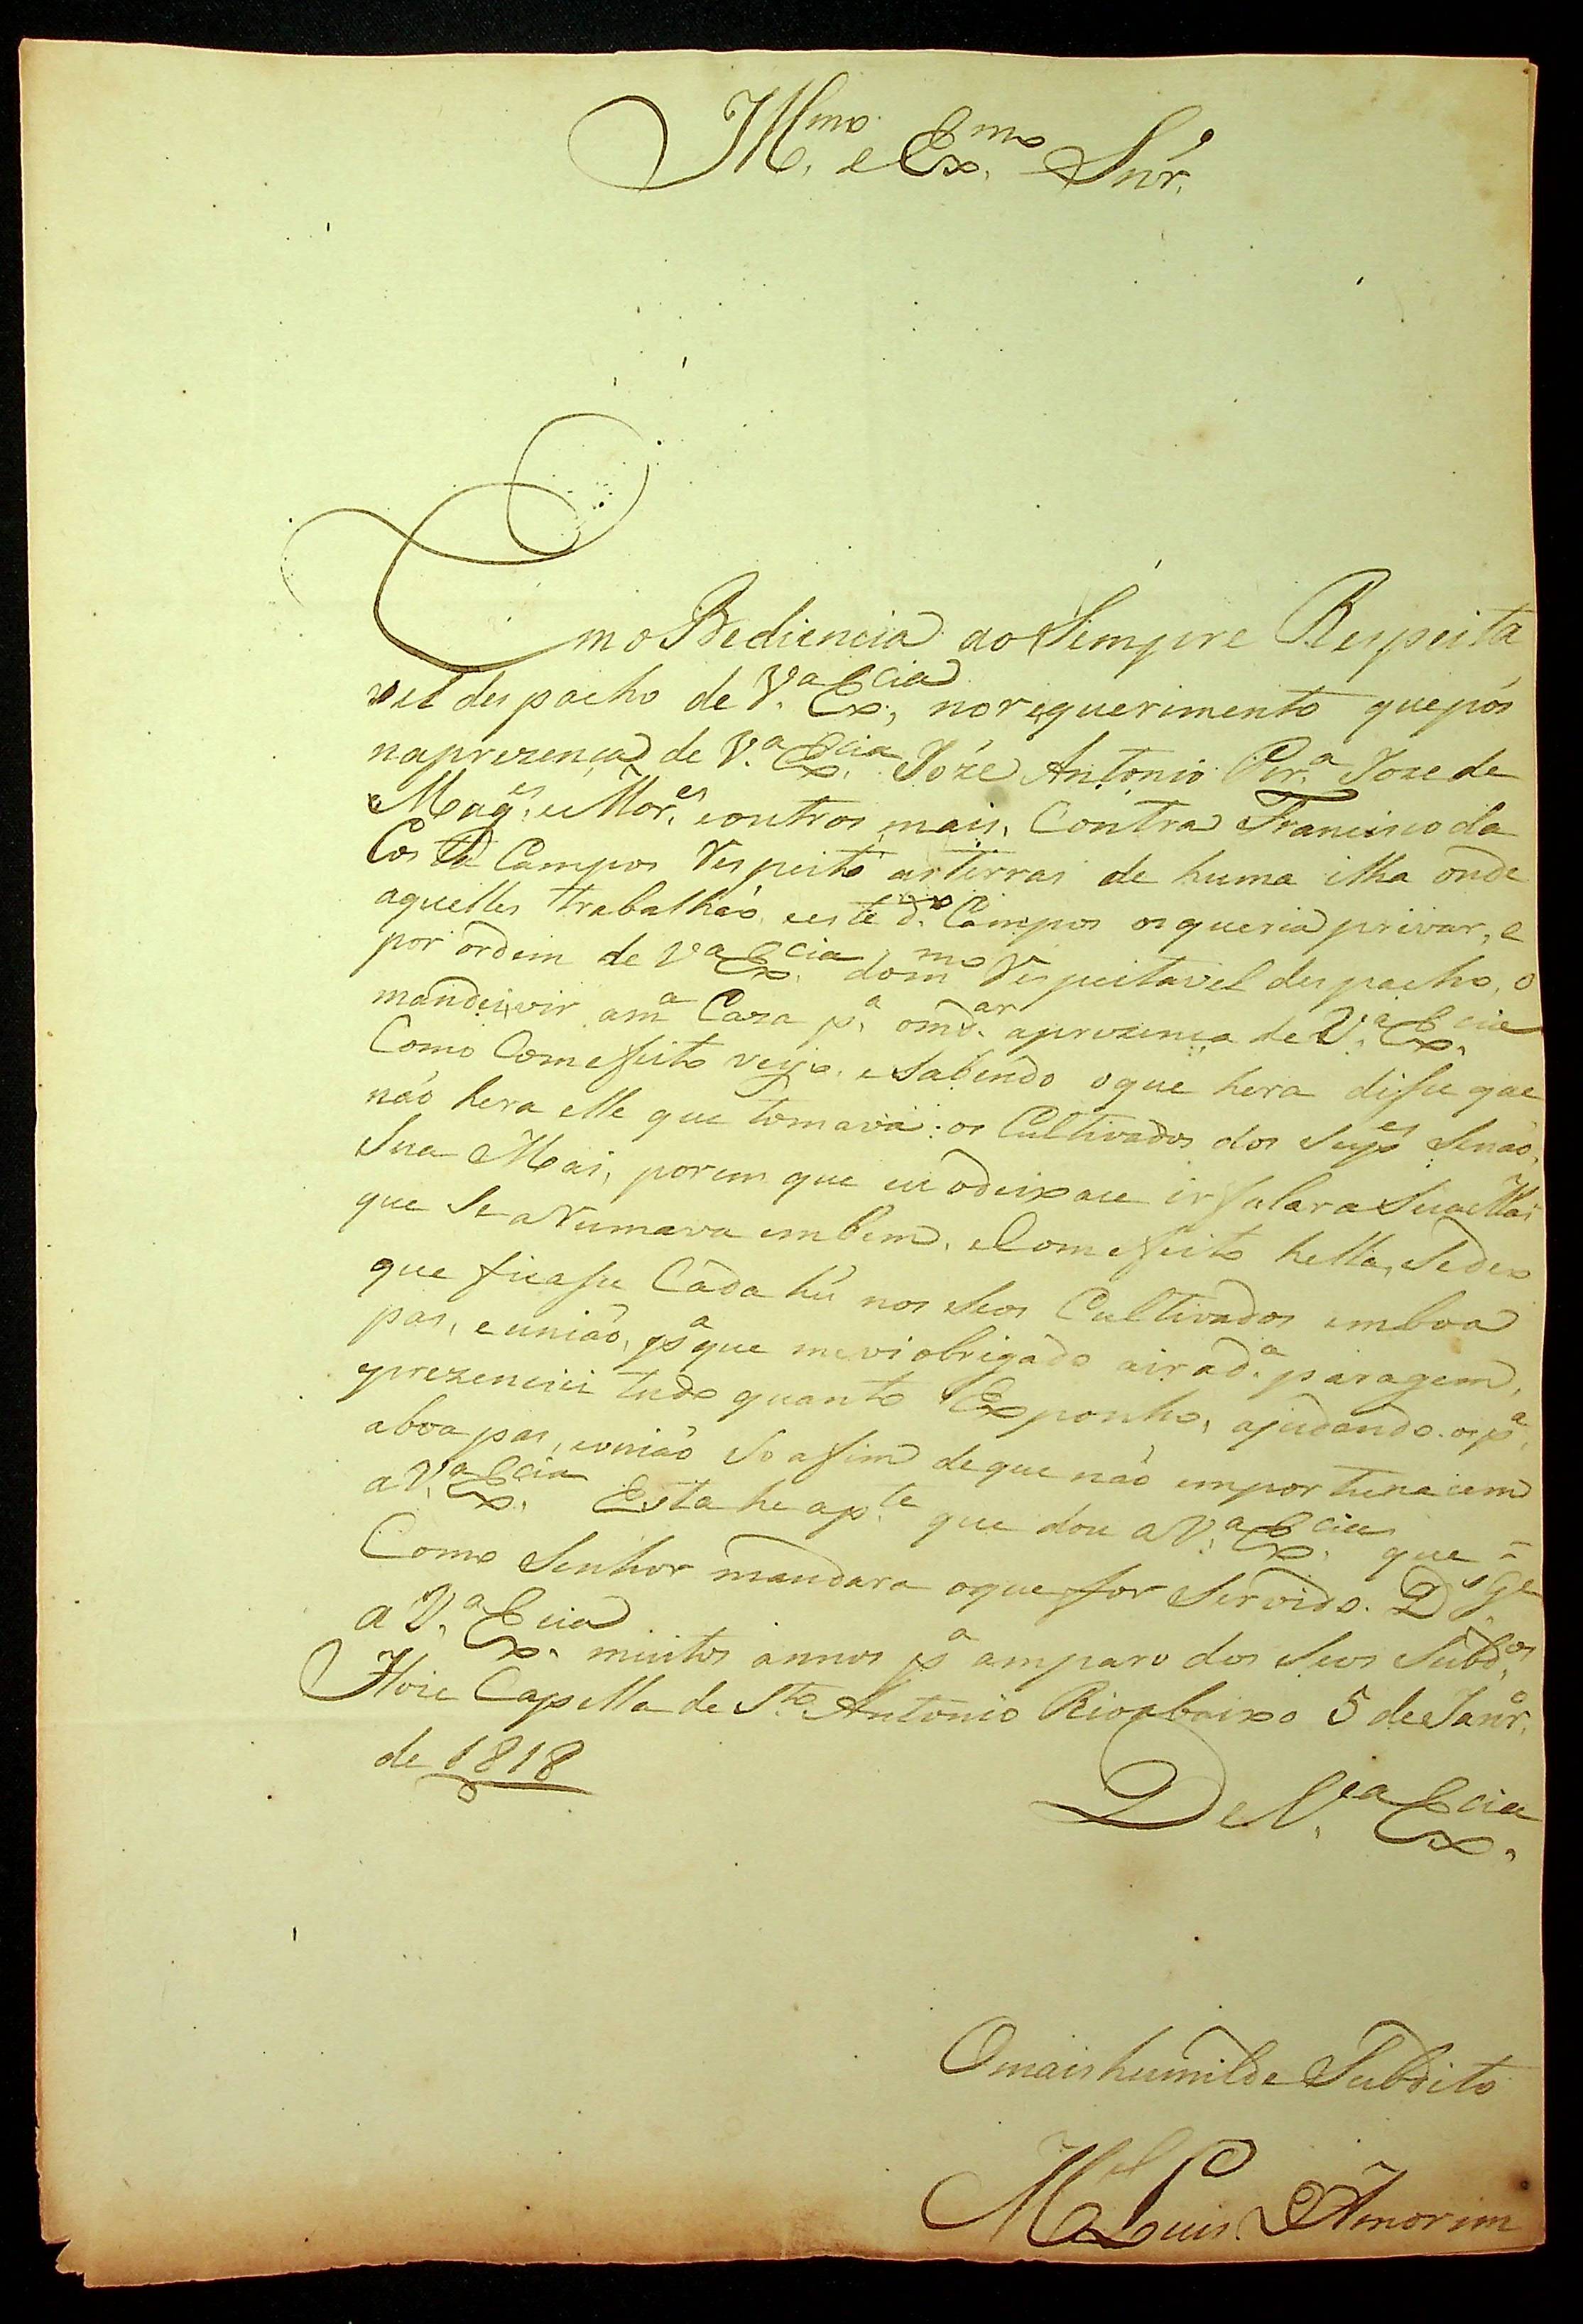 Ill.mo e Ex.mo Snr.
Em oBediencia ao Sempre Respeita
vel despacho de V.a Ex.cia no requerimento que pós
naprezença de V.a Ex.cia Joze Antonio Per.a Joze de
Mag.es e Mor.es eoutros mais, Contra Francisco da
Costa Campos Respeito asterras de huma ilha onde
aquelles trabalhaó, eeste d.o Campos osqueria privar, e
por ordem de V.a Ex.cia dom.mo Respeitavel despacho, o
mandei vir am.a Caza p.a omd.ar aprezença de V.a Ex.cia
Como Comefeito veyo, e Sabendo oque hera dise que
náo hera elle que tomava os Cultivados dos Sup.es Senáo,
Sua Mai, porem que eu odeixace ir falar a Sua Mai
que Se aRumava embem, eComefeito hella, Sedeo
que ficase Cada hú nos Seos Cultivados emboa
pas, e uniáo, p.a que mevi obrigado air ad.a paragem,
eprezenciei tudo quanto Exponho, ajudando os p.a
aboa pas, euniáo So afim deque náo emportunacem
a V.a Ex.cia Esta he ap.te que dou a V.a Ex.cia que =
Como Senhor mandara oque for Servido. D.s G.e
a V.a Ex.cia muitos annos p.a amparo dos Seos Subd.os
Hoie Capella de S.to Antonio Rioabaixo 5 de Janr.o
de 1818
De V.a Ex.cia
Omais humilde Subdito
M.el Luis D'Amorim